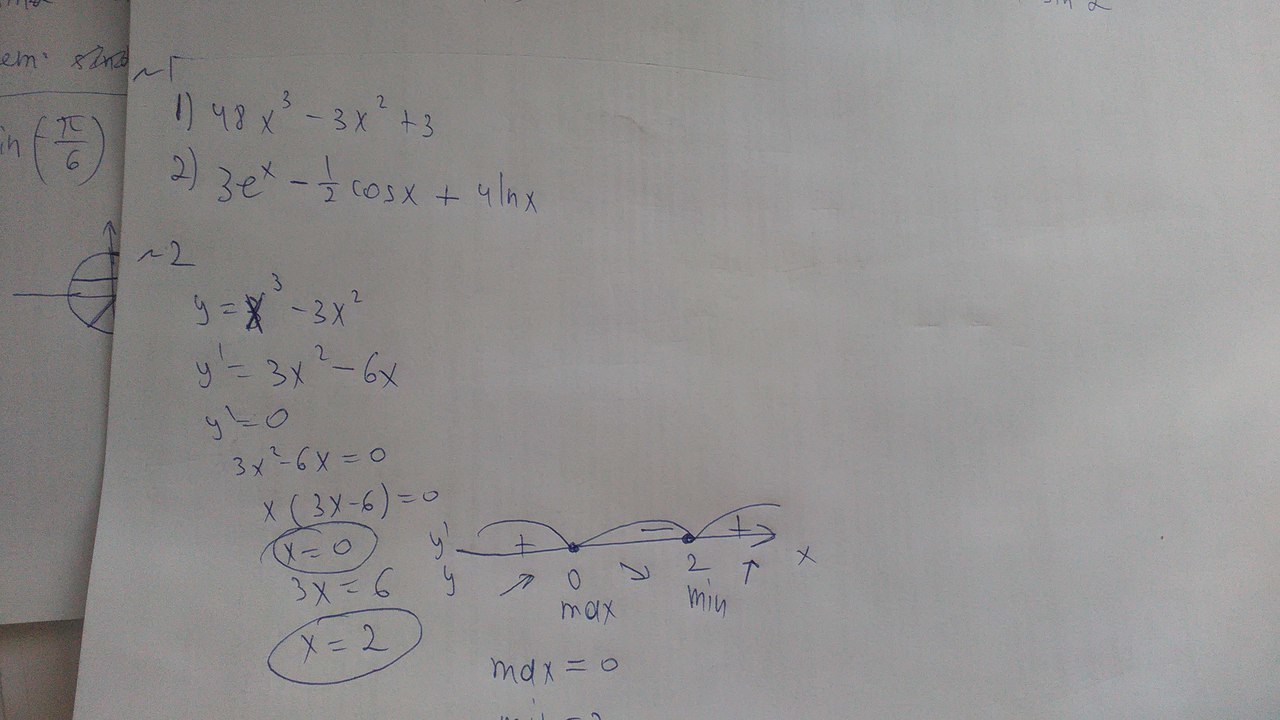 sin 2
em:
in (π/6)
~1
1) 48x³ - 3x² + 3
2) 3eˣ - 1/2 cosx + 4lnx
~2
y = x³ - 3x²
y' = 3x² - 6x
y' = 0
3x² - 6x = 0
x(3x-6) = 0
x = 0
3x = 6
x = 2
y' + - + x
y 0 2
max min
max = 0